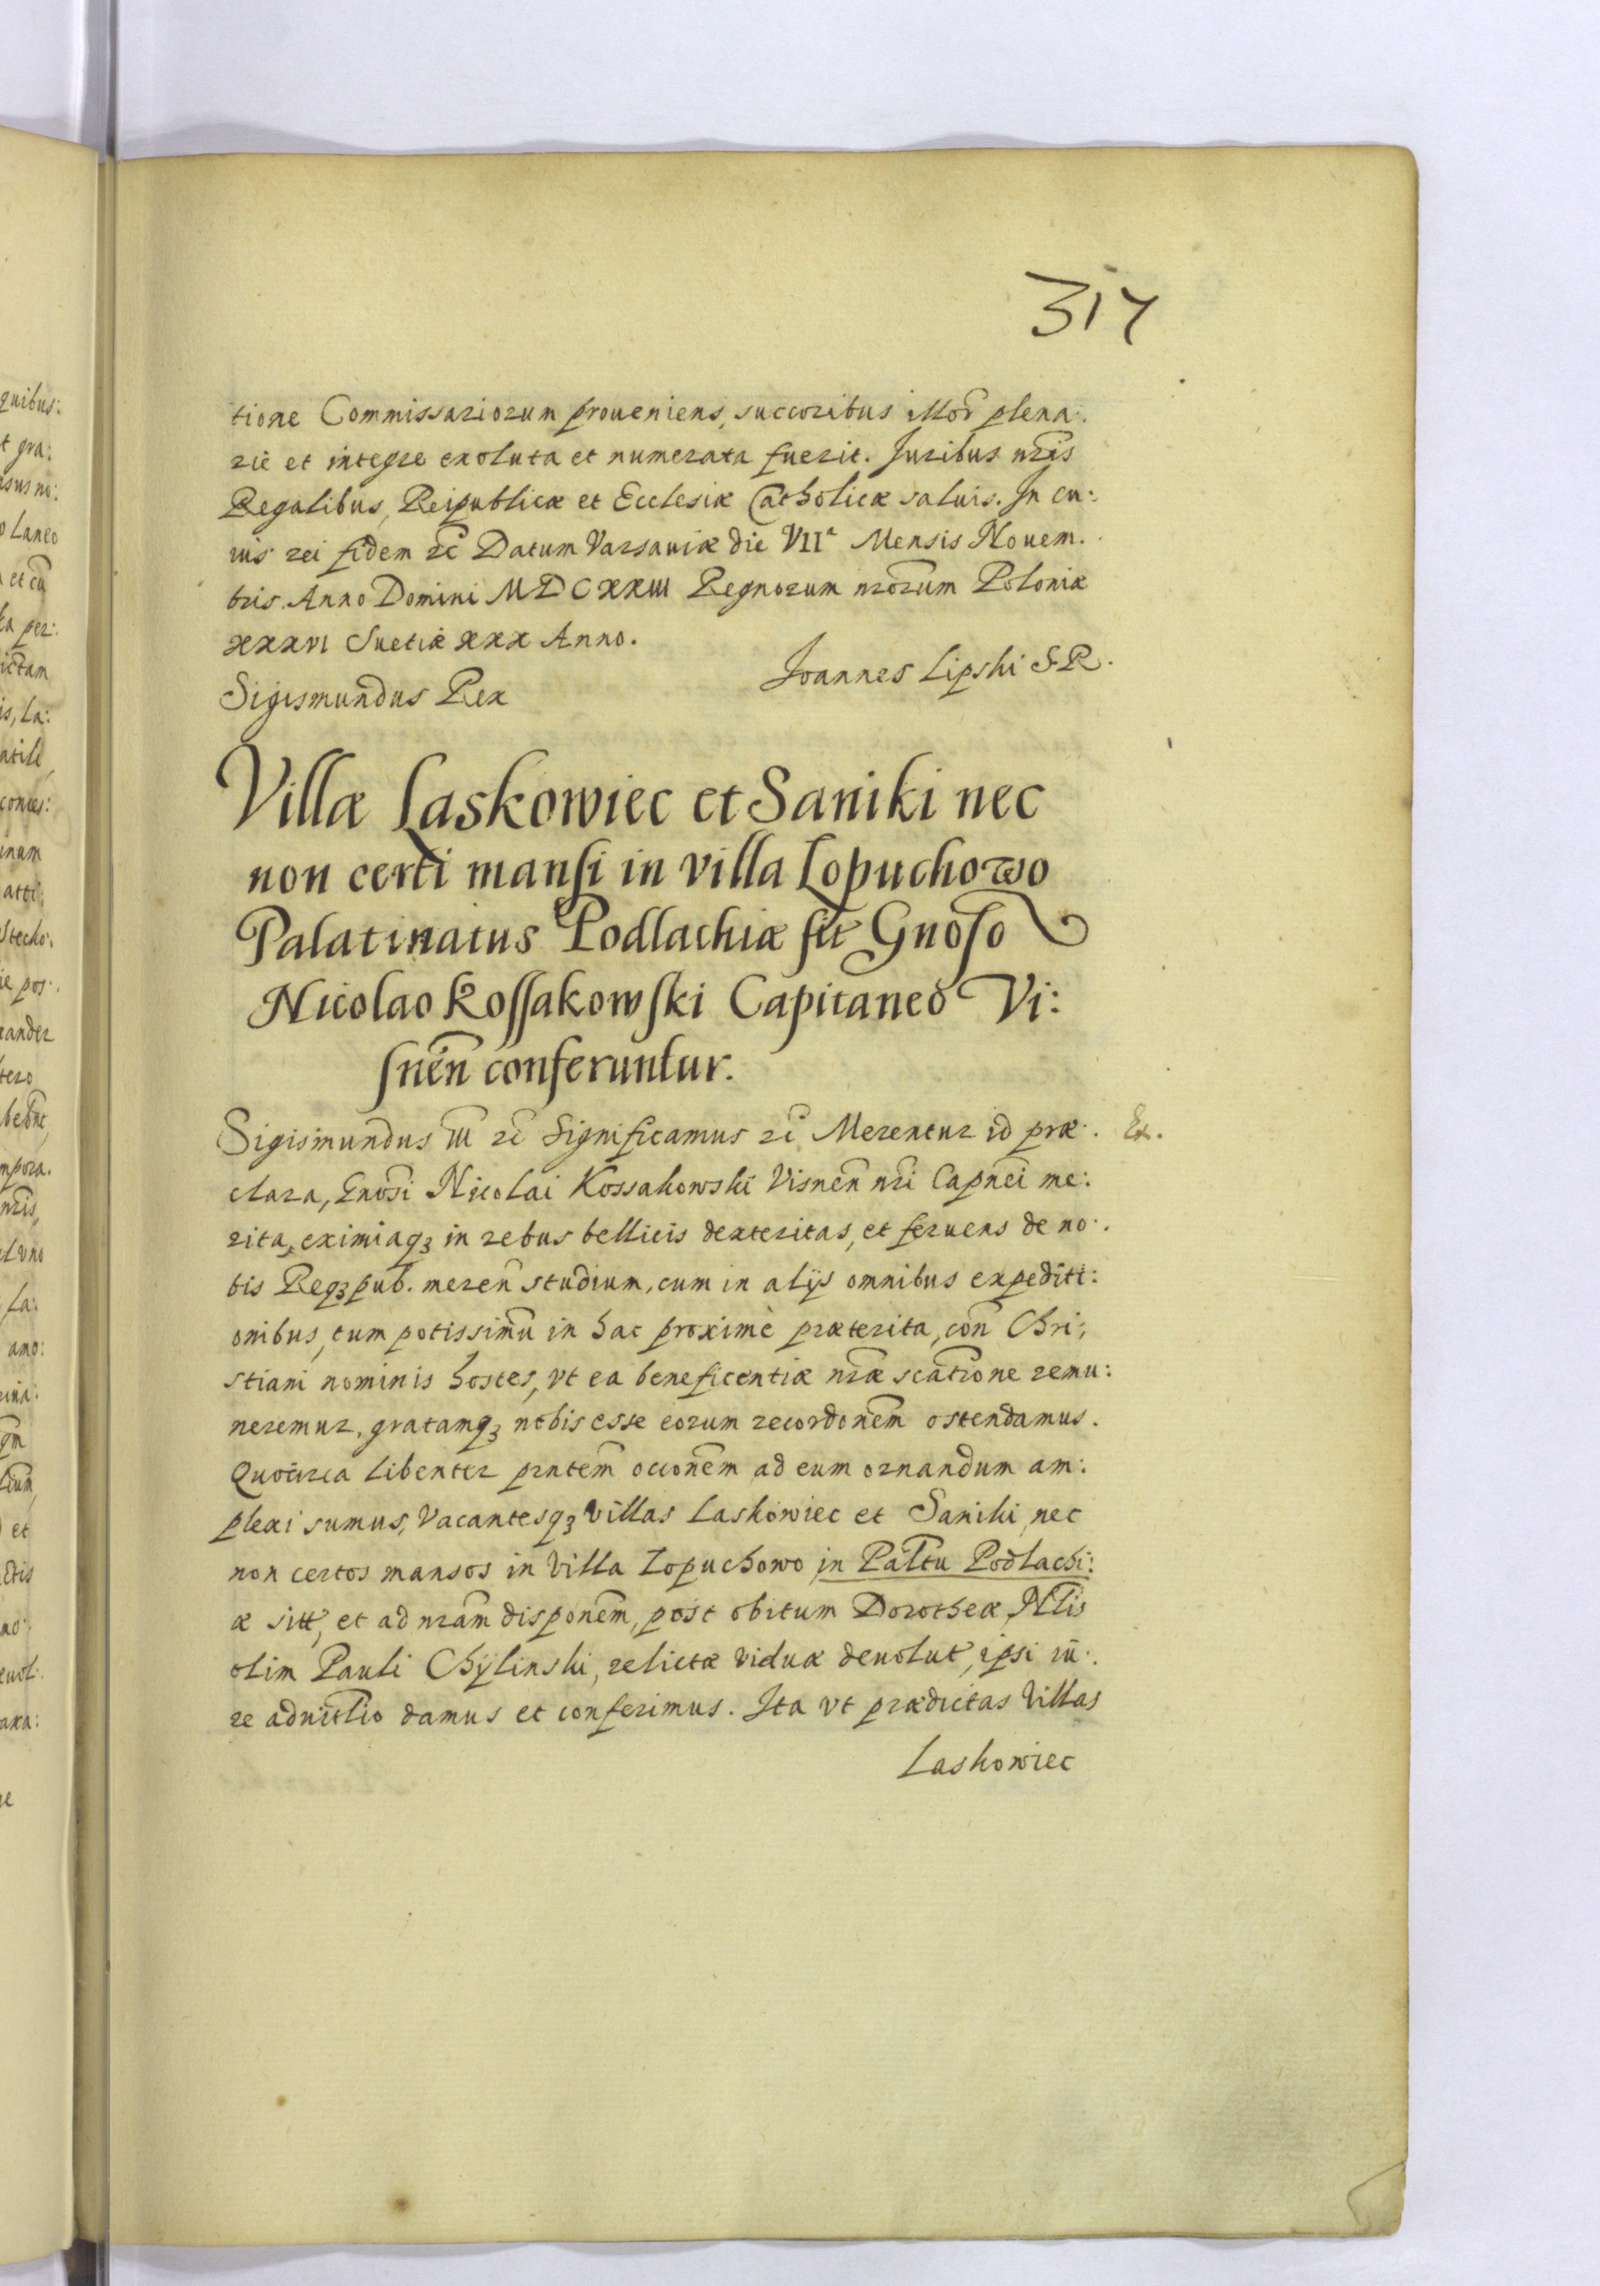 317
tione Commissariorum proueniens, succoribus illor̃ plena:
rie et integre exoluta et numerata fuerit. Juribus nr̃is
Regalibus, Reipublicæ et Ecclesiæ Catholicæ saluis. In cu:
ius rei fidem etc̃ Datum Varsauiæ die VIIa Mensis Nouem:
bris. Anno Domini MDCXXIII Regnorum nr̃orum Poloniæ
XXXVI Suetiæ XXX Anno.
Joannes Lipski S.R.
Sigismundus Rex
Villæ Laskowiec et Saniki nec
non certi mansi in villa Lopuchowo
Palatinatus Podlachiæ sit Gnõso
Nicolao Kossakowski Capitaneo Vi:
snẽn conferuntur.
Sigismundus III etc̃ Significamus etc̃ Merentur id præ:
Ex.
clara, Gnõsi Nicolai Kossakowski Visnẽn nr̃i Capnẽi me:
rita, eximiaqꝫ in rebus bellicis dexteritas, et feruens de no:
bis Reqꝫpub. merẽn studium, cum in alijs omnibus expediti:
onibus, tum potissimũ in hac proximè præterita, con̄ Chri:
stiani nominis hostes, vt ea beneficentiæ nr̃æ scatione remu:
neremur, gratamqꝫ nobis esse eorum recordonẽm ostendamus.
Quocirca libenter prntẽm occonẽm ad eum ornandum am:
plexi sumus, Vacantesqꝫ villas Laskowiec et Saniki, nec
non certos mansos in Villa Lopuchowo in Paltũ Podlachi:
æ sitt, et ad nr̃am disponẽm, post obitum Dorotheæ, Nl̃is
olim Pauli Chÿlinski, relictæ viduæ deuolut, ipsi iu:
re aduitl̃io damus et conferimus. Ita vt prædictas Villas
Laskowiec